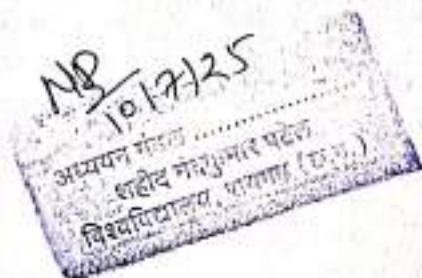 NP
10/7/25
अध्ययन मंडल ..................
शहीद नंदकुमार पटेल
विश्वविद्यालय, रायगढ़ (छ.ग.)